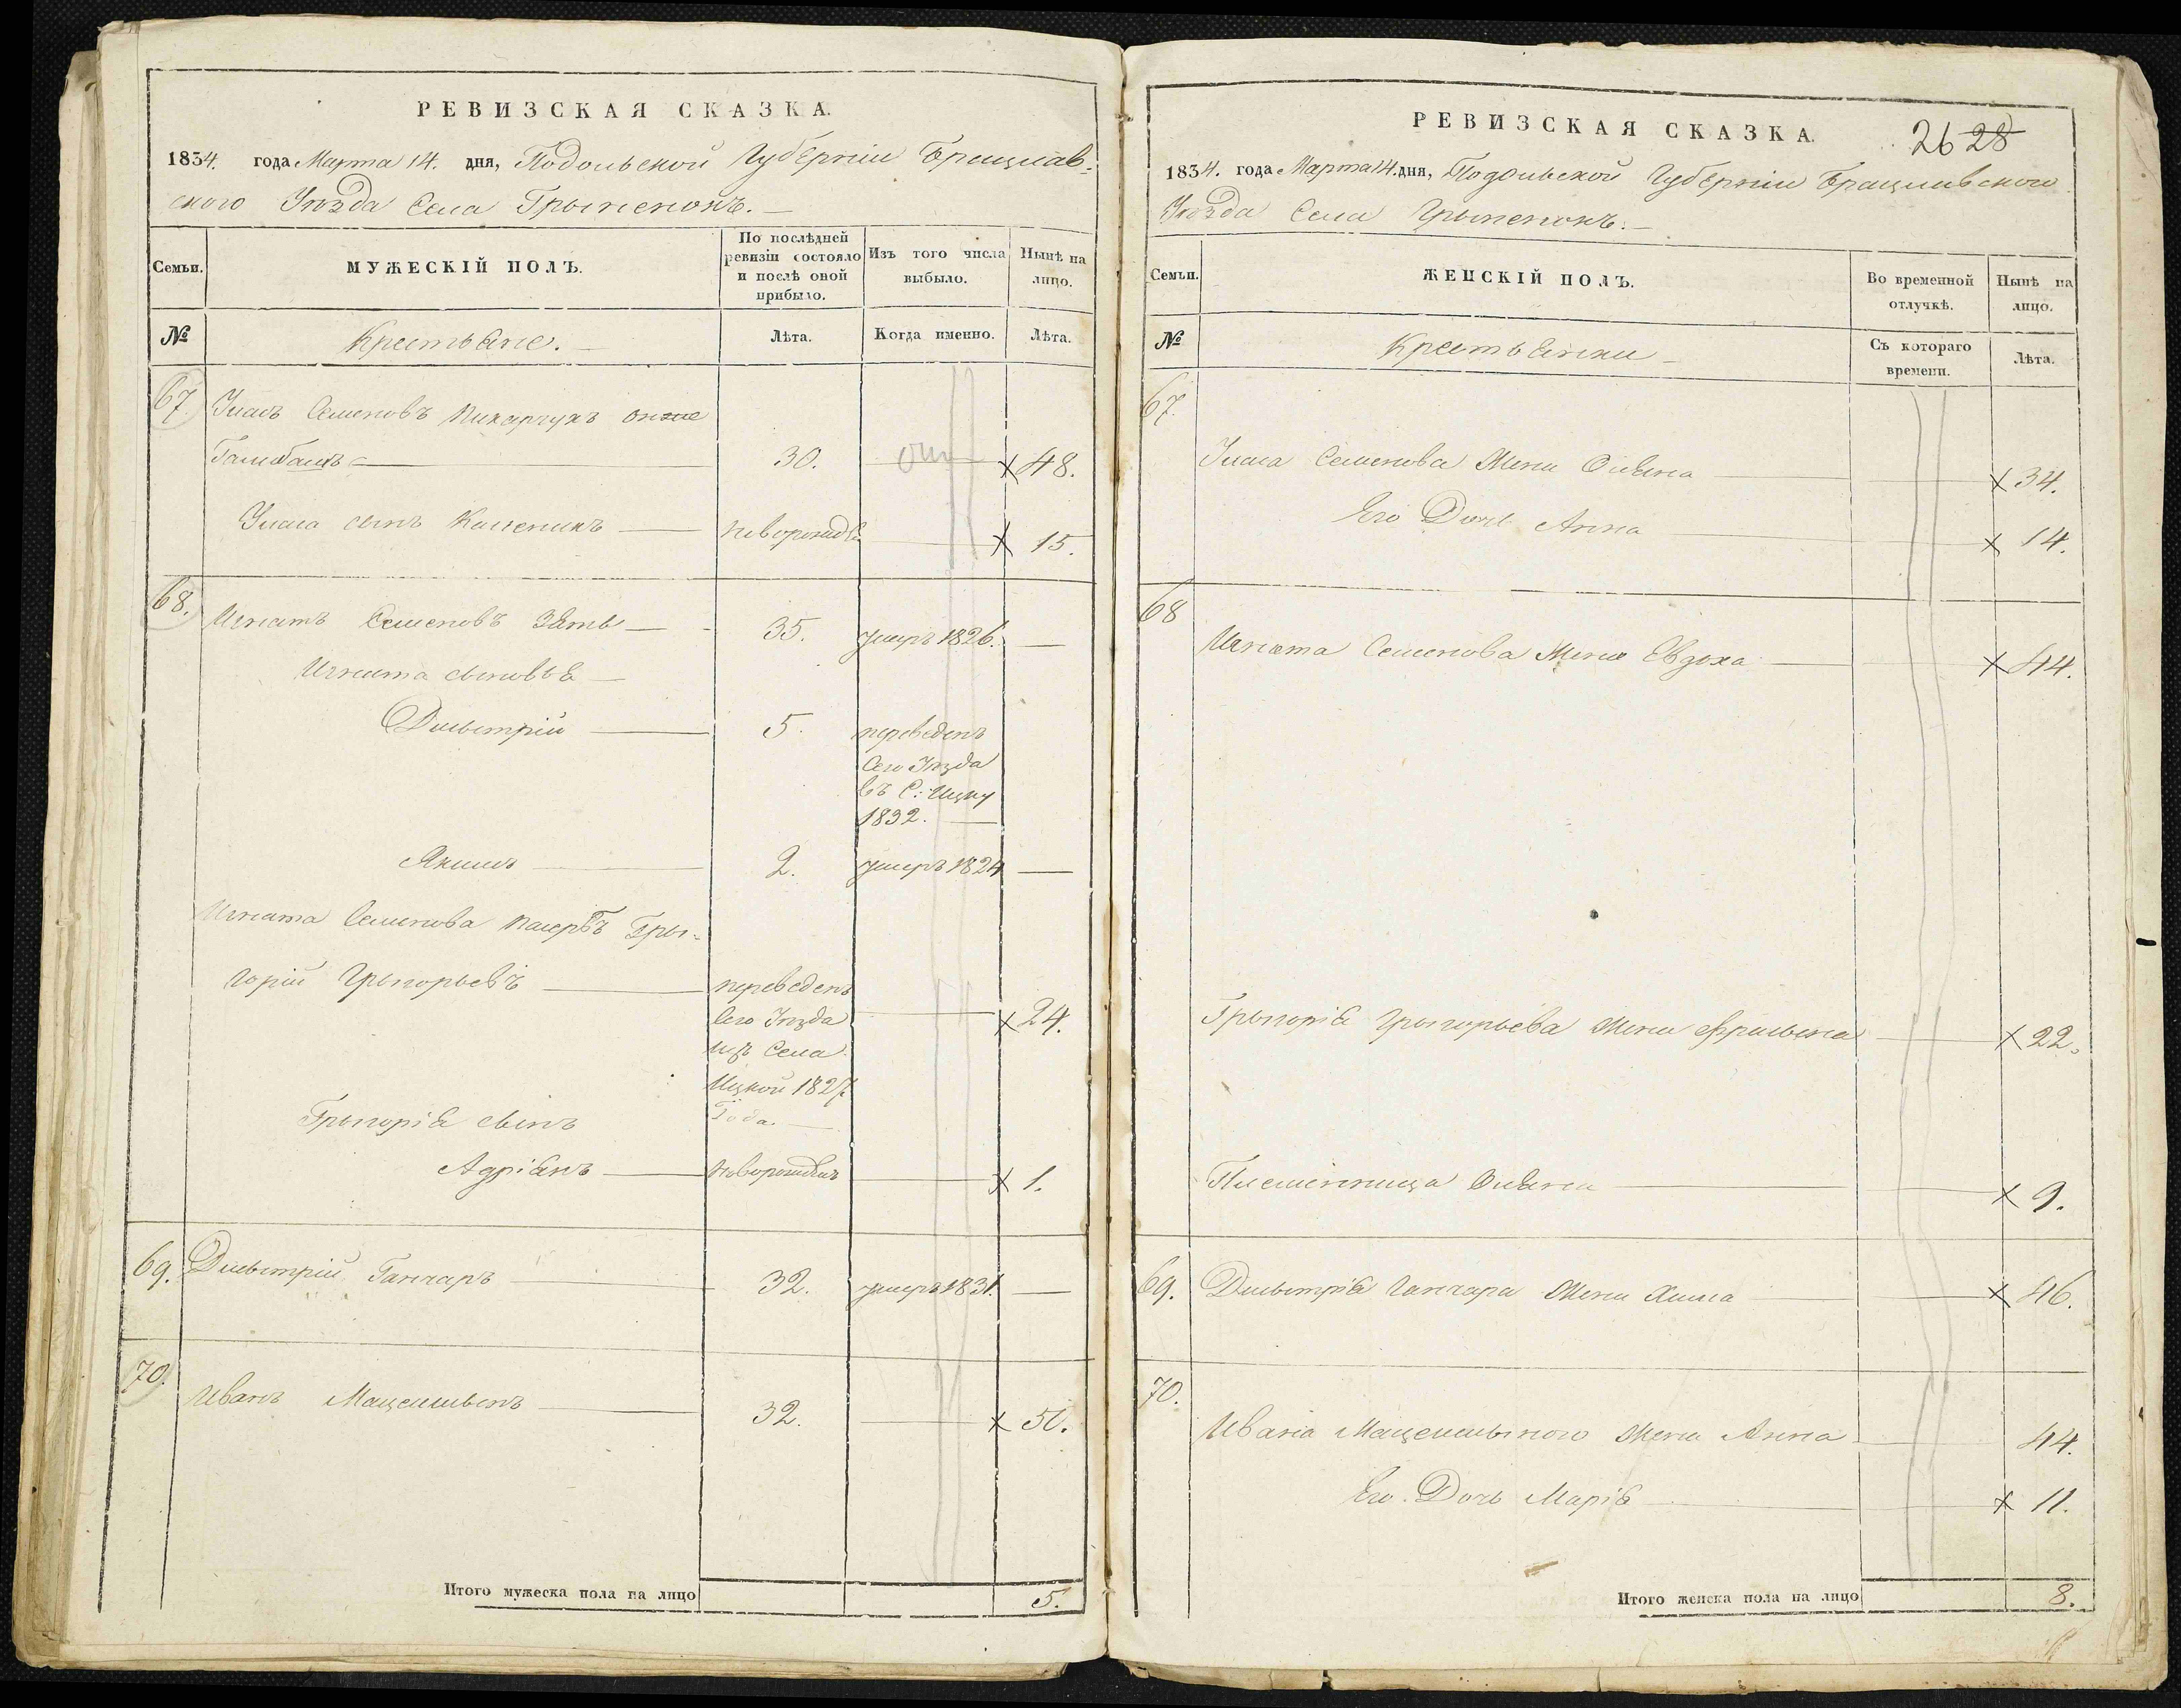 РЕВИЗСКАЯ СКАЗКА.
1834. года Марта 14. дня, Подольской Губерніи Брацлав-
ского Уѣзда Села Грыненокъ.
Семьи.
МУЖЕСКІЙ ПОЛЪ.
По послѣдней ревизіи состояло и послѣ оной прибыло.
Изъ того числа выбыло.
Нынѣ на лицо.
№
Крестьяне.
Лѣта.
Когда именно.
Лѣта.
67. Уласъ Семеновъ онже
30. 48.
Уласа сынъ Каленикъ новорожде 15.
68. Игнатъ Семеновъ Зять 35. умеръ 1826.
Игната сыновья
Дмытрій 5. переведенъ
Сего Уѣзда
въ С: Ицку
1832.
Якимъ 2. умеръ 1824
Игната Семенова Гры-
горій Грыгорьевъ переведенъ
Сего Уѣзда 24.
изъ Села
Ицкой 1827
Года.
Грыгорія сынъ
Адріянъ новорожденъ 1.
69. Дмытрій Ганчаръ 32. умеръ 1831.
70. Иванъ 32. 50.
Итого мужеска пола на лицо 5.
РЕВИЗСКАЯ СКАЗКА.
26 28
1834. года Марта 14. дня, Подольской Губерніи Брацлавского
Уѣзда Села Грыненокъ.
Семьи.
ЖЕНСКІЙ ПОЛЪ.
Во временной отлучкѣ.
Нынѣ на лицо.
№
Крестьянки
Съ котораго времени.
Лѣта.
67.
Уласа Семенова Жена Оляна 34.
Его Дочь Анна 14.
68
Игната Семенова Жена Евдоха 44.
Грыгорія Грыгорьева Жена 22.
Племенница Оляна 9.
69. Дмытрія Ганчара Жена Химa 46.
70.
Ивана Жена Анна 44.
Его Дочь Марія 11.
Итого женска пола на лицо 8.